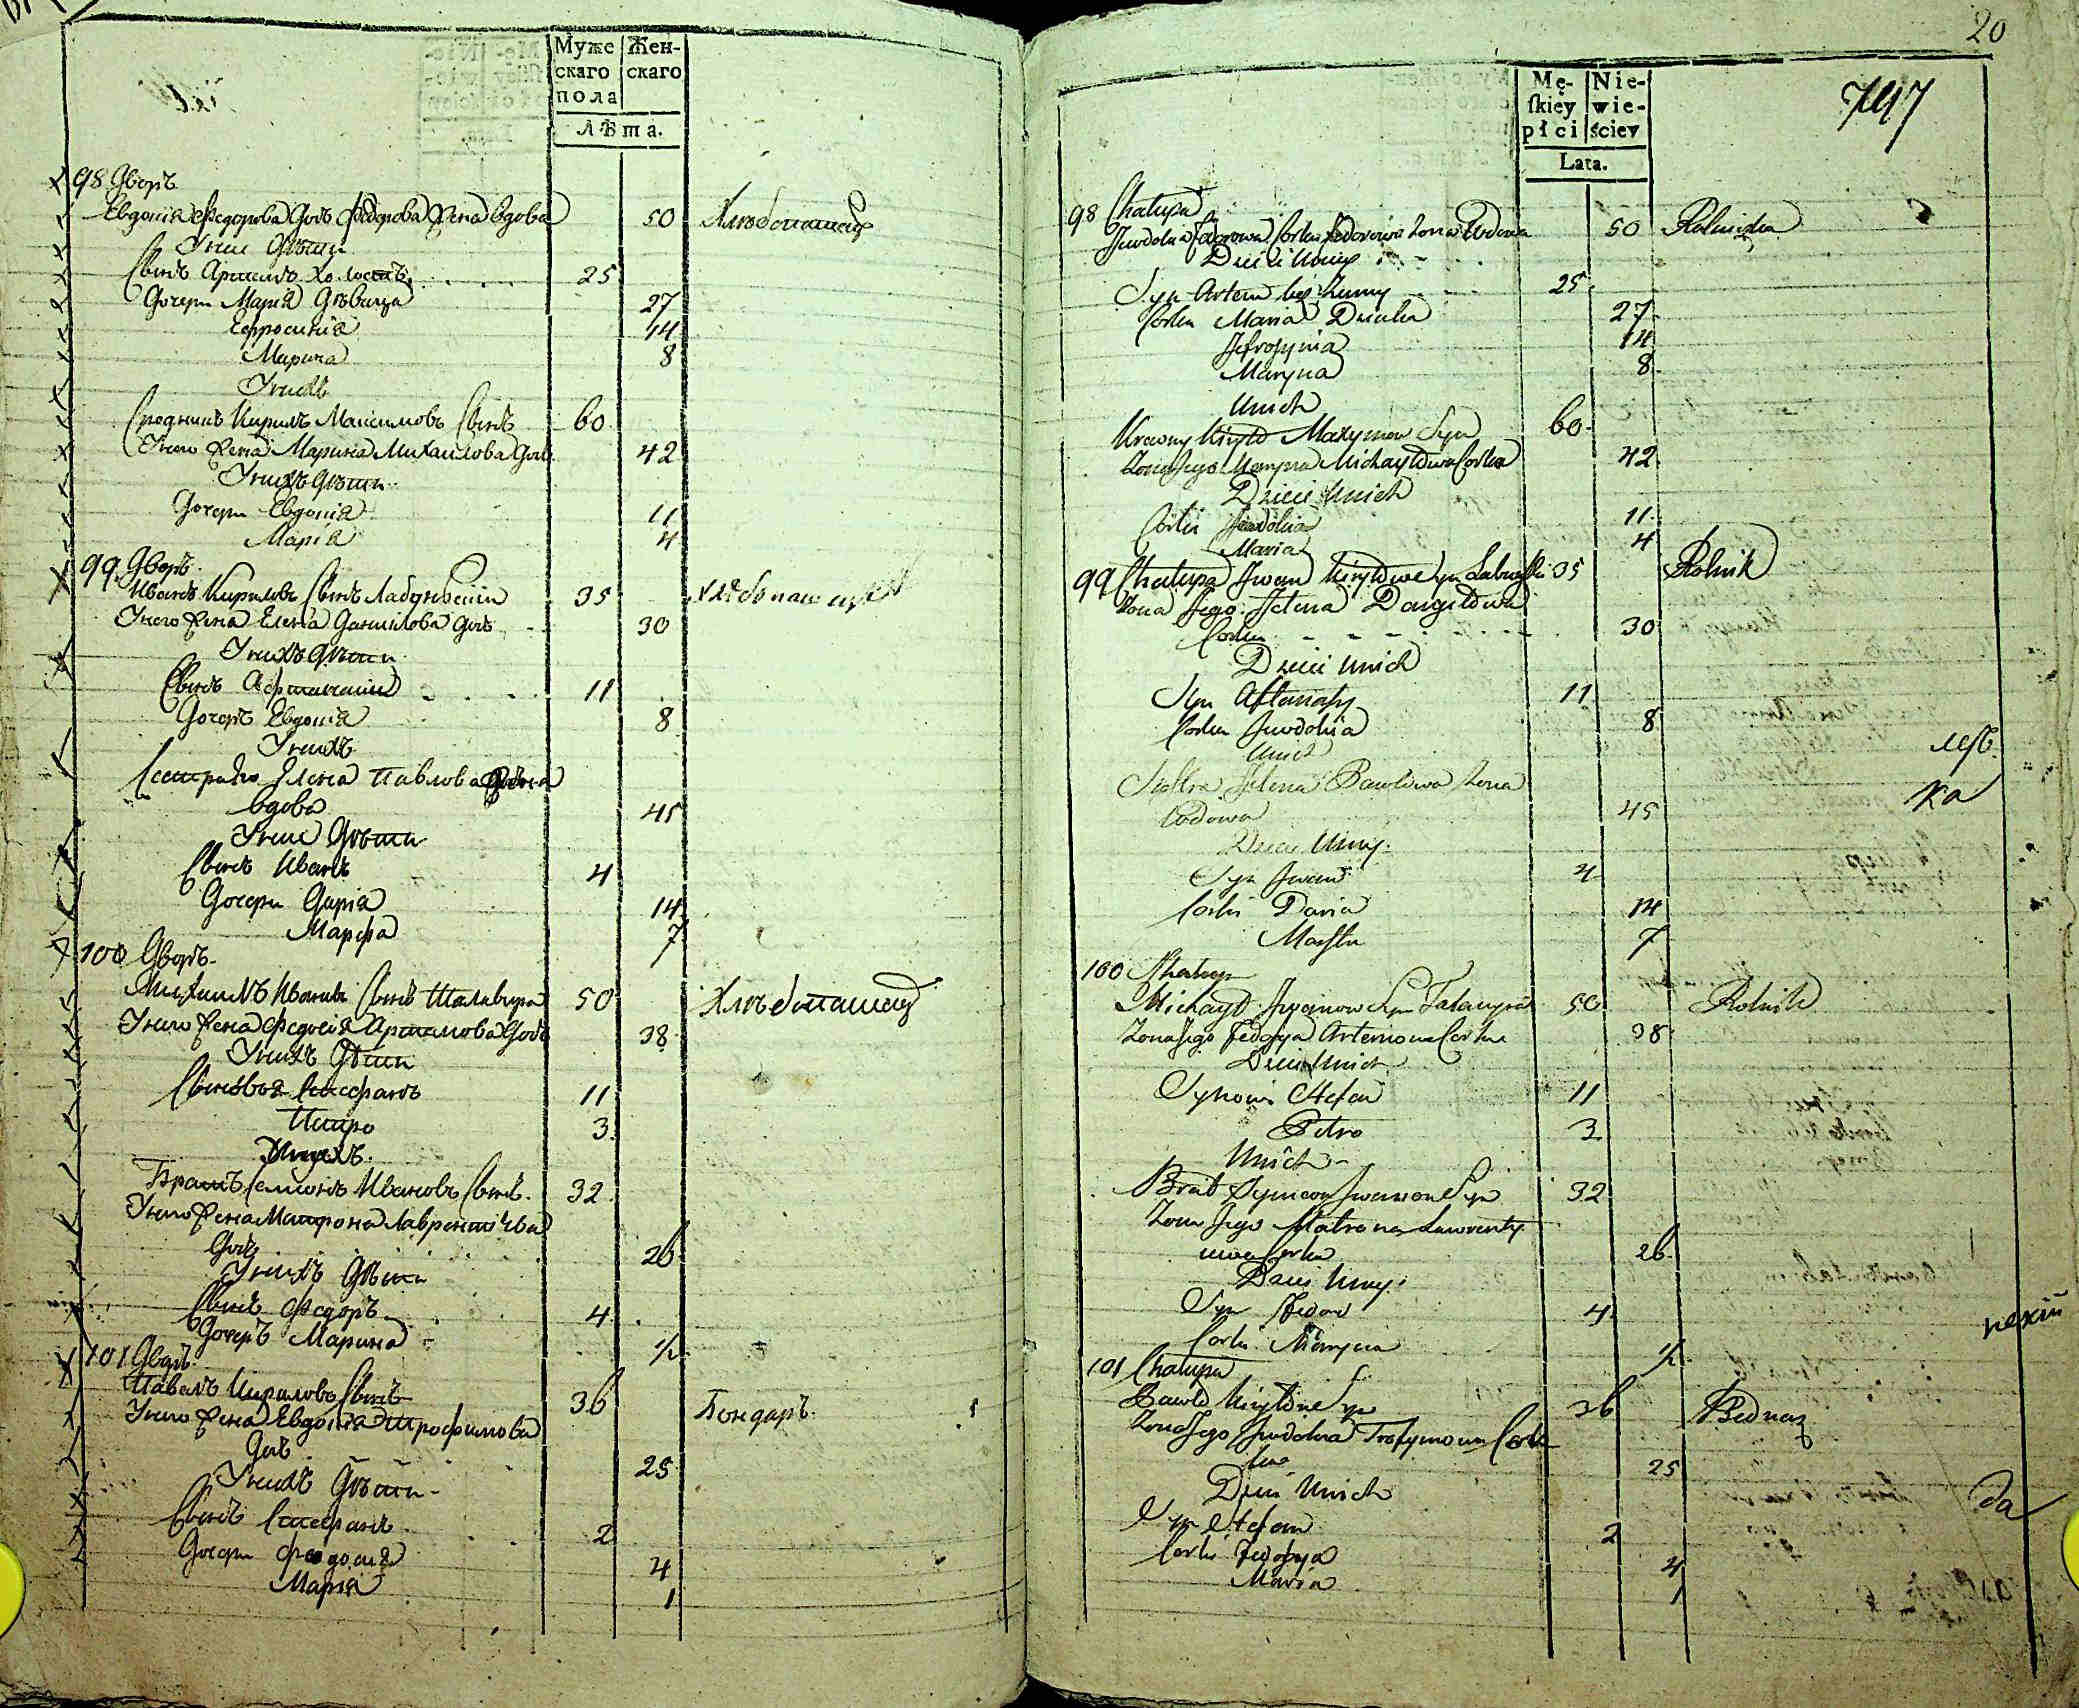 Муже Жен-
скаго скаго
пола
Лѣта.
98 Дворъ
Евдокія Федорова Дочь Федорова Жена вдова 50 Хлебопашецъ
Унее Дѣти
Сынъ Артемъ Холостъ 25
Дочери Марія Дѣвица 27
Ефросинія 14
Марина 8
Унихъ
Сродникъ Кирилъ Максимовъ Сынъ 60
Унего Жена Марина Михайлова Дочь 42
Унихъ Дѣти
Дочери Евдокія 11
Марія 4
99 Дворъ
Иванъ Кириловъ Сынъ 35 хлебопашецъ
Унего Жена Елена Данилова Дочь 30
Унихъ Дѣти
Сынъ Афтанасій 11
Дочеръ Евдокія 8
Унихъ
Сестра Елена Павлова Жена
вдова 45
Унее Дѣти
Сынъ Иванъ 4
Дочери Дарія 14
Марфа 7
100 Дворъ
Михаилъ Ивановъ Сынъ 50 Хлѣбопашецъ
Унего Жена Федосія Артемова Дочь 38
Унихъ Дѣти
Сыновья Стефанъ 11
Петро 3
Унихъ
Братъ Семіонъ Ивановъ Сынъ 32
Унего Жена Матрона Лаврентіева
Дочь 26
Унихъ Дѣти
Сынъ Федоръ 4
Дочеръ Марина 1/2
101 Дворъ
Павелъ Кириловъ Сынъ 36 Бондаръ
Унего Жена Евдокія Трофимова
Дочь 25
Унихъ Дѣти
Сынъ Стефанъ 2
Дочери Феодосія 4
Марія 1
20
797
Mę- Nie-
ſkiey wie-
płci ściey
Lata.
98 Chałupa
Jewdokia Fedorowa Corka Fedorowa Zona Wdowa 50 Rolniczka
Dzieci Uniey
Syn Artem bez Zenny 25
Corki Maria Dziwka 27
Jefrosynia 14
Maryna 8
Unich
Krewny Kiryło Maxymow Syn 60
Zona Jego Maryna Michayłowa Corka 42
Dzieci Unich
Corki Jewdokia 11
Maria 4
99 Chałupa Jwan Kiryłow Syn 35 Rolnik
Zona Jego Jelena Daniłowa
Corka 30
Dzieci Unich
Syn Aftanasy 11
Corka Jewdokia 8
Unich
Siostra Jelena Pawłowa Zona
Wdowa 45
Dzieci Uniey
Syn Jwan 4
Corki Daria 14
Marfa 7
100 Chałupa
Michayło Jwanow Syn 50 Rolnik
Zona Jego Fedosya Artemowa Corka 38
Dzieci Unich
Synowie Stefan 11
Petro 3
Unich
Brat Symeon Jwanow Syn 32
Zona Jego Matrona Lawrenty
iowa Corka 26
Dzieci
Syn Fedor 4
Corka Maryna 1/2
101 Chałupa
Pawło Kiryłow Syn 36 Bednarz
Zona Jego Jewdokia Trofymowa Corka
25
Dzieci Unich
Syn Stefan 2
Corki Fedosya 4
Maria 1
ка
да